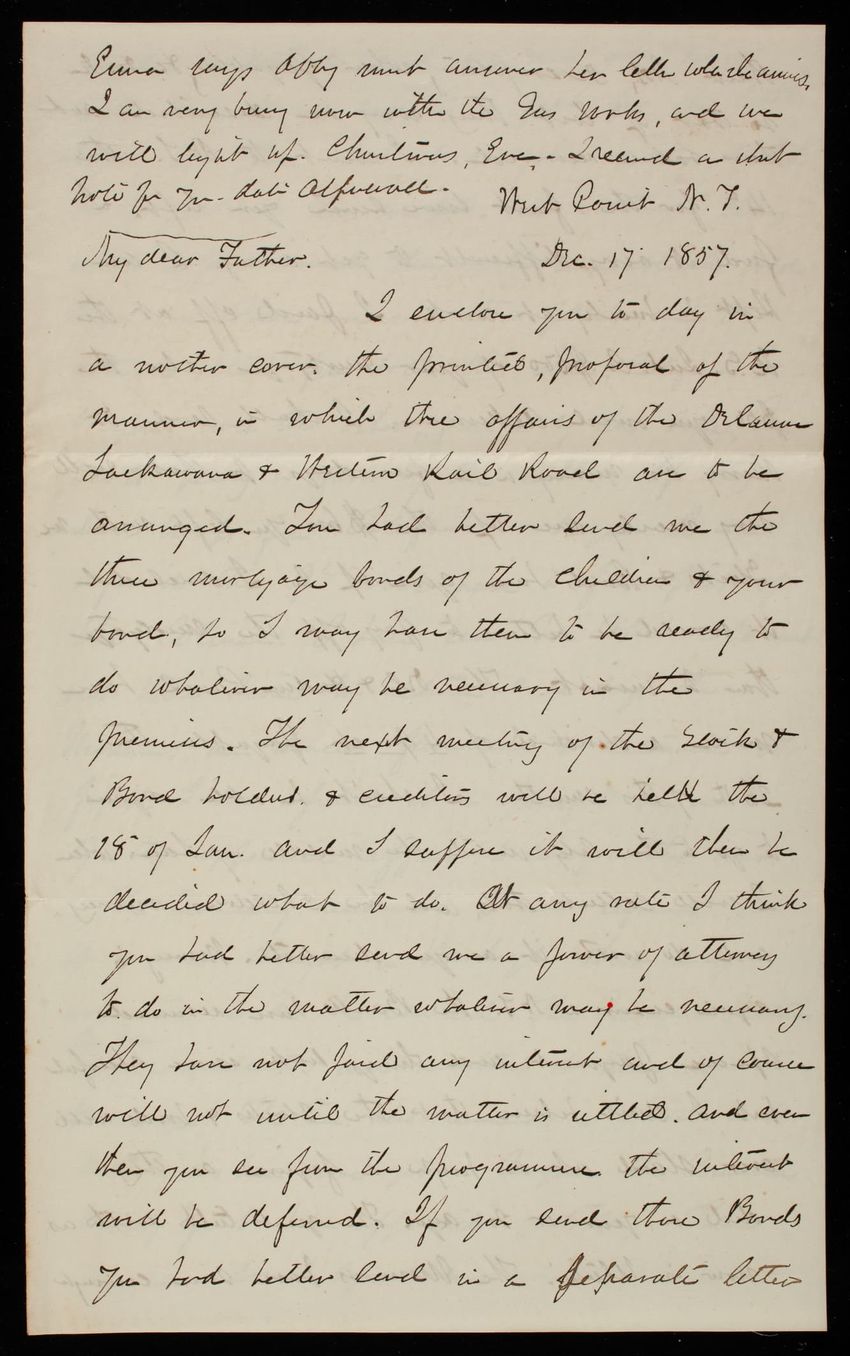 Emma says Abby must answer her letter when she arrives.
I am very busy now with the Gas Works, and we
will light up. Christmas, Eve. - I receivd a short
note for you - date Alfred
West Point N. Y.
My dear Father. Dec. 17 1857.
I enclose you to day in
a nother cover. the printed, proposal of the
manner, in which the affairs of the Delaware
Lackawana & Western Rail Road are to be
arranged. You had better send me the
three mortgage bonds of the children & your
bond, so I may have them to be ready to
do whatever may be necessary in the
premises. The next meeting of the Stock &
Bond holders. & creditors will be held the
18 of Jan. and I suppose it will then be
decided what to do. At any rate I think
you had better send me a power of attorney
to do in the matter whatever may be necessary.
They have not paid any interest and of course
will not until the matter is settled. and even
then you see from the programme. the interest
will be deferred. If you send those Bonds
you had better send in a separate letter